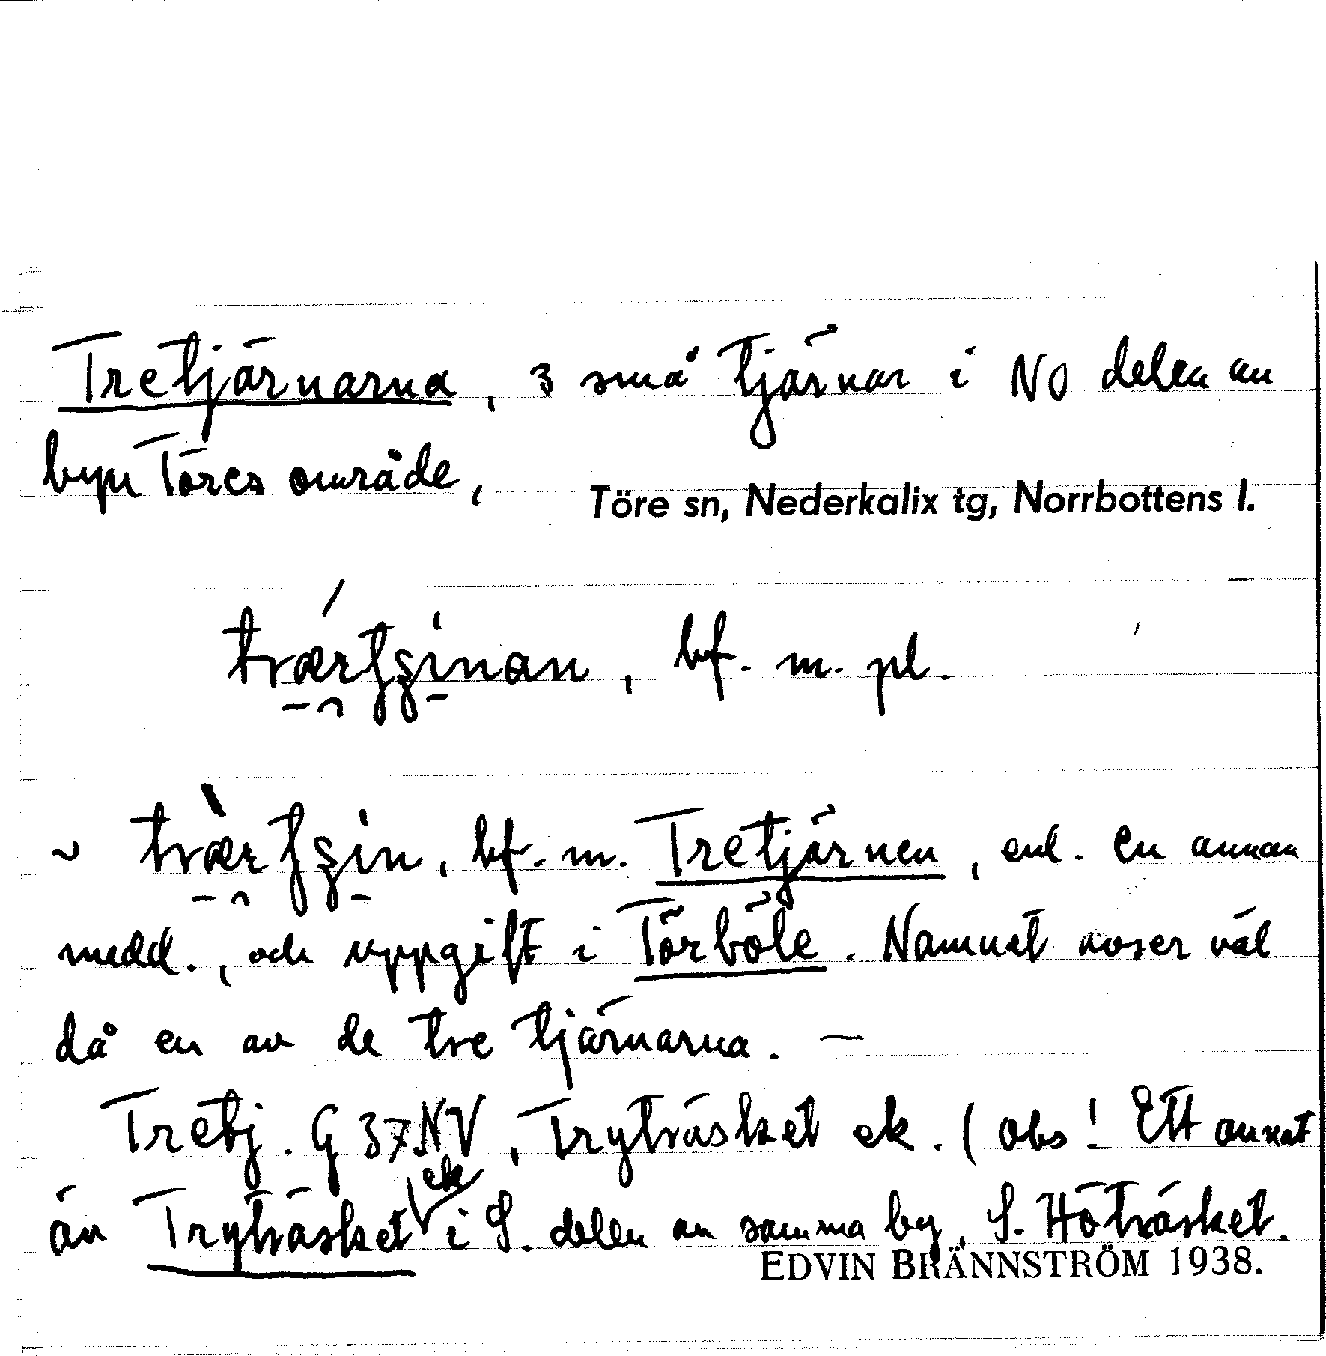 Tretjärnarna, 3 små tjärnar i NO delen av
byn Töres område,
Töre sn, Nederkalix tg, Norrbottens l.
bf. m. pl.
~ bf. m. Tretjärnen, enl. en annan
medd., och uppgift i Törböle. Namnet avser väl
då en av de tre tjärnarna. —
Tretj. G 37 NV, Trytväsket ek. (obs! Ett annat
än Trytväsket ek i S. delen av samma by, S. Hötväsket.
EDVIN BRÄNNSTRÖM 1938.